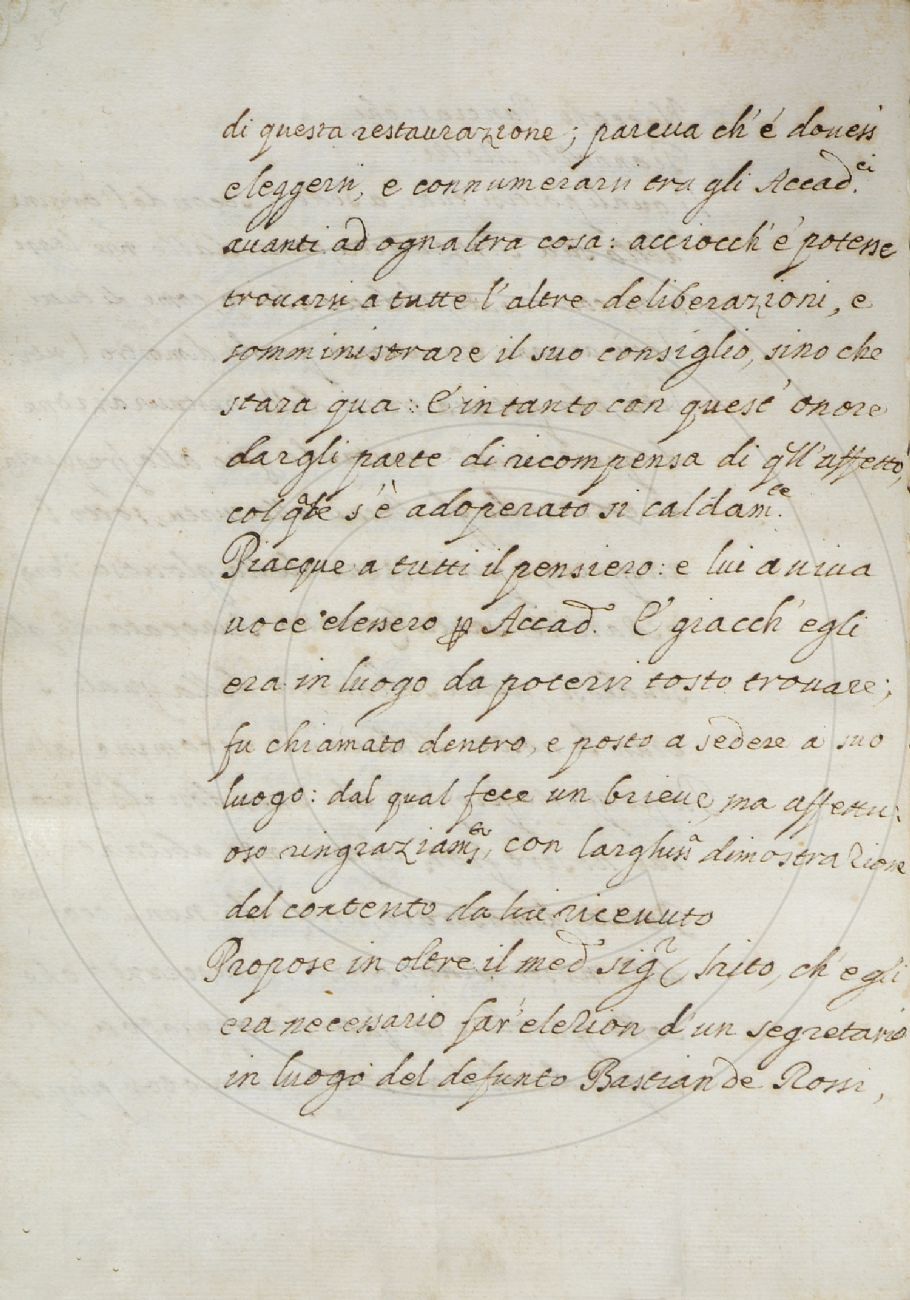 di questa restaurazione; pareua ch'é douess
eleggersi, e connumerarsi tra gli Accad.ci
auanti ad ognaltra cosa: acciocch'é potesse
trouarsi a tutte l'altre deliberazioni, e
somministrare il suo consiglio, sino che
stara qua: E intanto con quest' onore
dargli parte di ricompensa di qll'affetto,
colqle s'è adoperato si caldam.te
Piacque a tutti il pensiero: e lui a uiua
uoce elessero p Accad. E giacch' egli
era in luogo da potersi tosto trouare;
fu chiamato dentro, e posto a sedere a suo
luogo: dal qual fece un brieue, ma affettu:
oso ringraziam.to, con larghiss.a dimostrazione
del contento da lui riceuuto
Propose in oltre il med. sig.r, ch'egli
era necessario far'elezion d'un segretario
in luogo del defunto Bastian de Rossi,